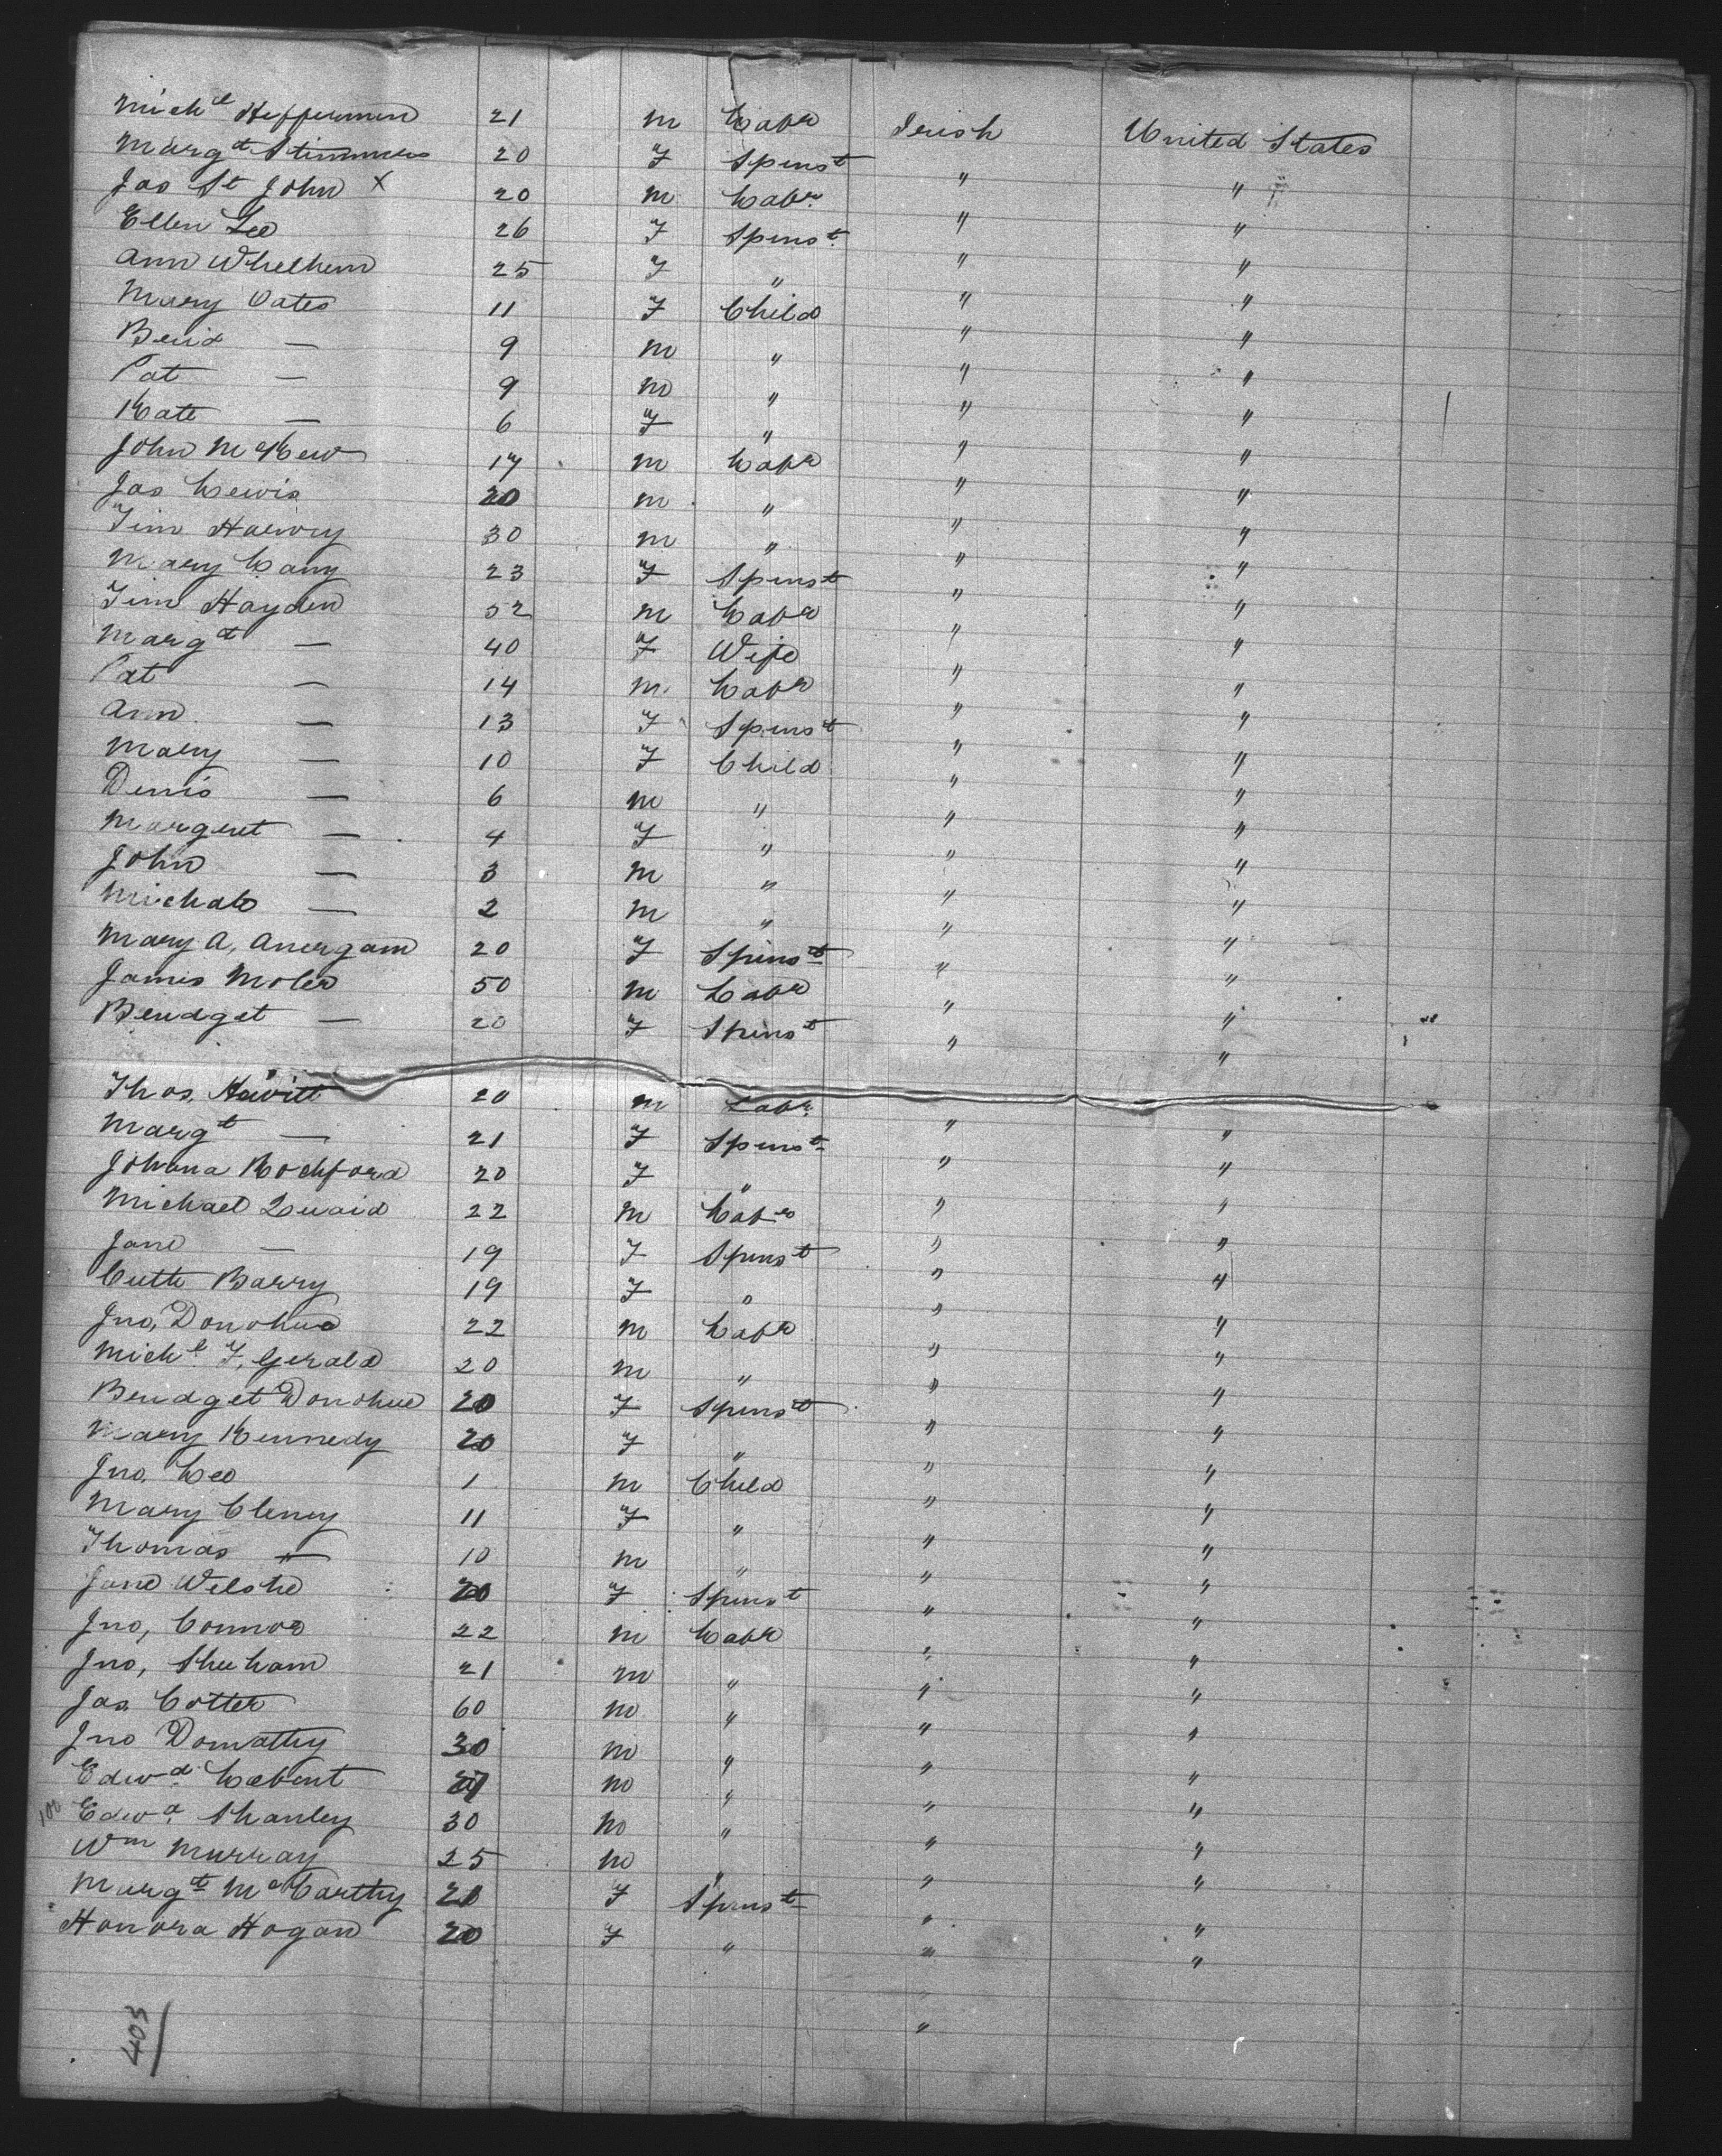 Mich^l Heffernan 21 m Labr Irish United States
Marg^t Stimmers 20 F Spinst " "
Jas St John x 20 m Labr. " "
Ellen Lee 26 F Spinst. " "
Ann Whelhem 25 F " " "
Mary Oates 11 F Child " "
Brid — 9 m " " "
Pat — 9 m " " "
Kate — 6 F " " "
John McKew 17 m Labr " "
Jas Lewis 20 m " " "
Tim Harvey 30 m " " "
Mary Lany 23 F Spinst " "
Tim Hayden 52 m Labr " "
Marg^t — 40 F Wife " "
Pat — 14 m Labr " "
Ann — 13 F Spinst " "
Mary — 10 F Child " "
Denis — 6 m " " "
Margeret — 4 F " " "
John — 3 m " " "
Michale — 2 m " " "
Mary A, 20 F Spinst " "
James Moler 50 m Labr " "
Bridget — 20 F Spinst " "
Thos. Hewitt 20 m Labr. " "
Marg^t — 21 F Spinst " "
Johana Rochford 20 F " " "
Michael Quaid 22 m Labr " "
Jane — 19 F Spinst " "
Cath Barry 19 F " " "
Jno, Donohue 22 m Labr " "
Mich^l F, Gerald 20 m " " "
Bridget Donohue 20 F Spinst " "
Mary Kennedy 20 F " " "
Jno. Leo 1 m Child " "
Mary Cleney 11 F " " "
Thomas — 10 m " " "
Jane Welshe 20 F Spinst " "
Jno, Connor 22 m Labr " "
Jno, Sheeham 21 m " " "
Jas. Cotter 60 m " " "
Jno Domathy 30 m " " "
Edw^d. m " " "
100 Edw^d. Shanley 30 m " " "
W^m Murray 25 m " " "
Marg^t McCarthy F Spinst " "
Honora Hogan 20 F " " "
"
403